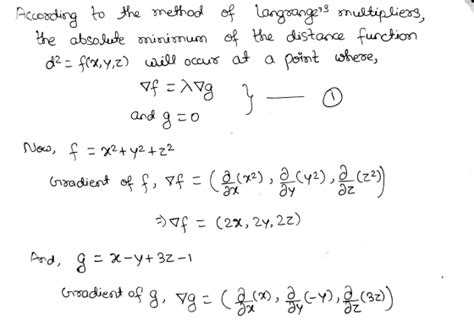 According to the method of langrange's multipliers,
the absolute minimum of the distance function
d² = f(x,y,z) will occur at a point where,
∇f = λ∇g
and g = 0 } — ①
Now, f = x²+y²+z²
Gradient of f, ∇f = (∂/∂x (x²), ∂/∂y (y²), ∂/∂z (z²))
⇒ ∇f = (2x, 2y, 2z)
And, g = x-y+3z-1
Gradient of g, ∇g = (∂/∂x (x), ∂/∂y (-y), ∂/∂z (3z))